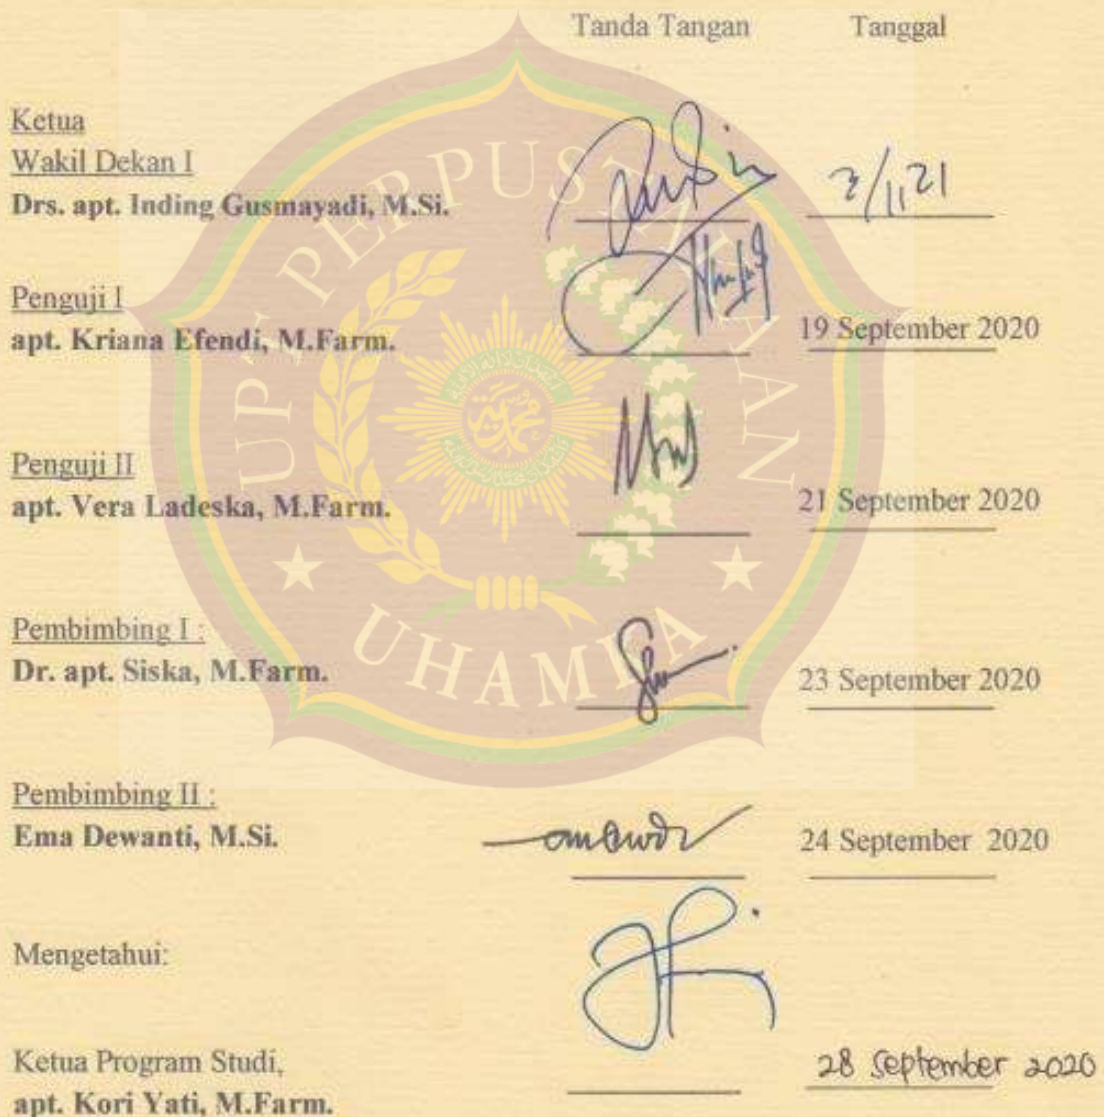 Tanda Tangan Tanggal
Ketua
Wakil Dekan I
Drs. apt. Inding Gusmayadi, M.Si. 2/11 21
Penguji I
apt. Kriana Efendi, M.Farm. 19 September 2020
Penguji II
apt. Vera Ladeska, M.Farm. 21 September 2020
Pembimbing I :
Dr. apt. Siska, M.Farm. 23 September 2020
Pembimbing II :
Ema Dewanti, M.Si. 24 September 2020
Mengetahui:
Ketua Program Studi, 28 September 2020
apt. Kori Yati, M.Farm.
UPT PERPUSTAKAAN
UHAMKA